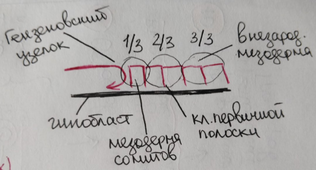 Гензеновский
узелок
1/3 2/3 3/3
Внезарод.
мезодерма
гипобласт
мезодерма
сомитов
кл. первичной
полоски